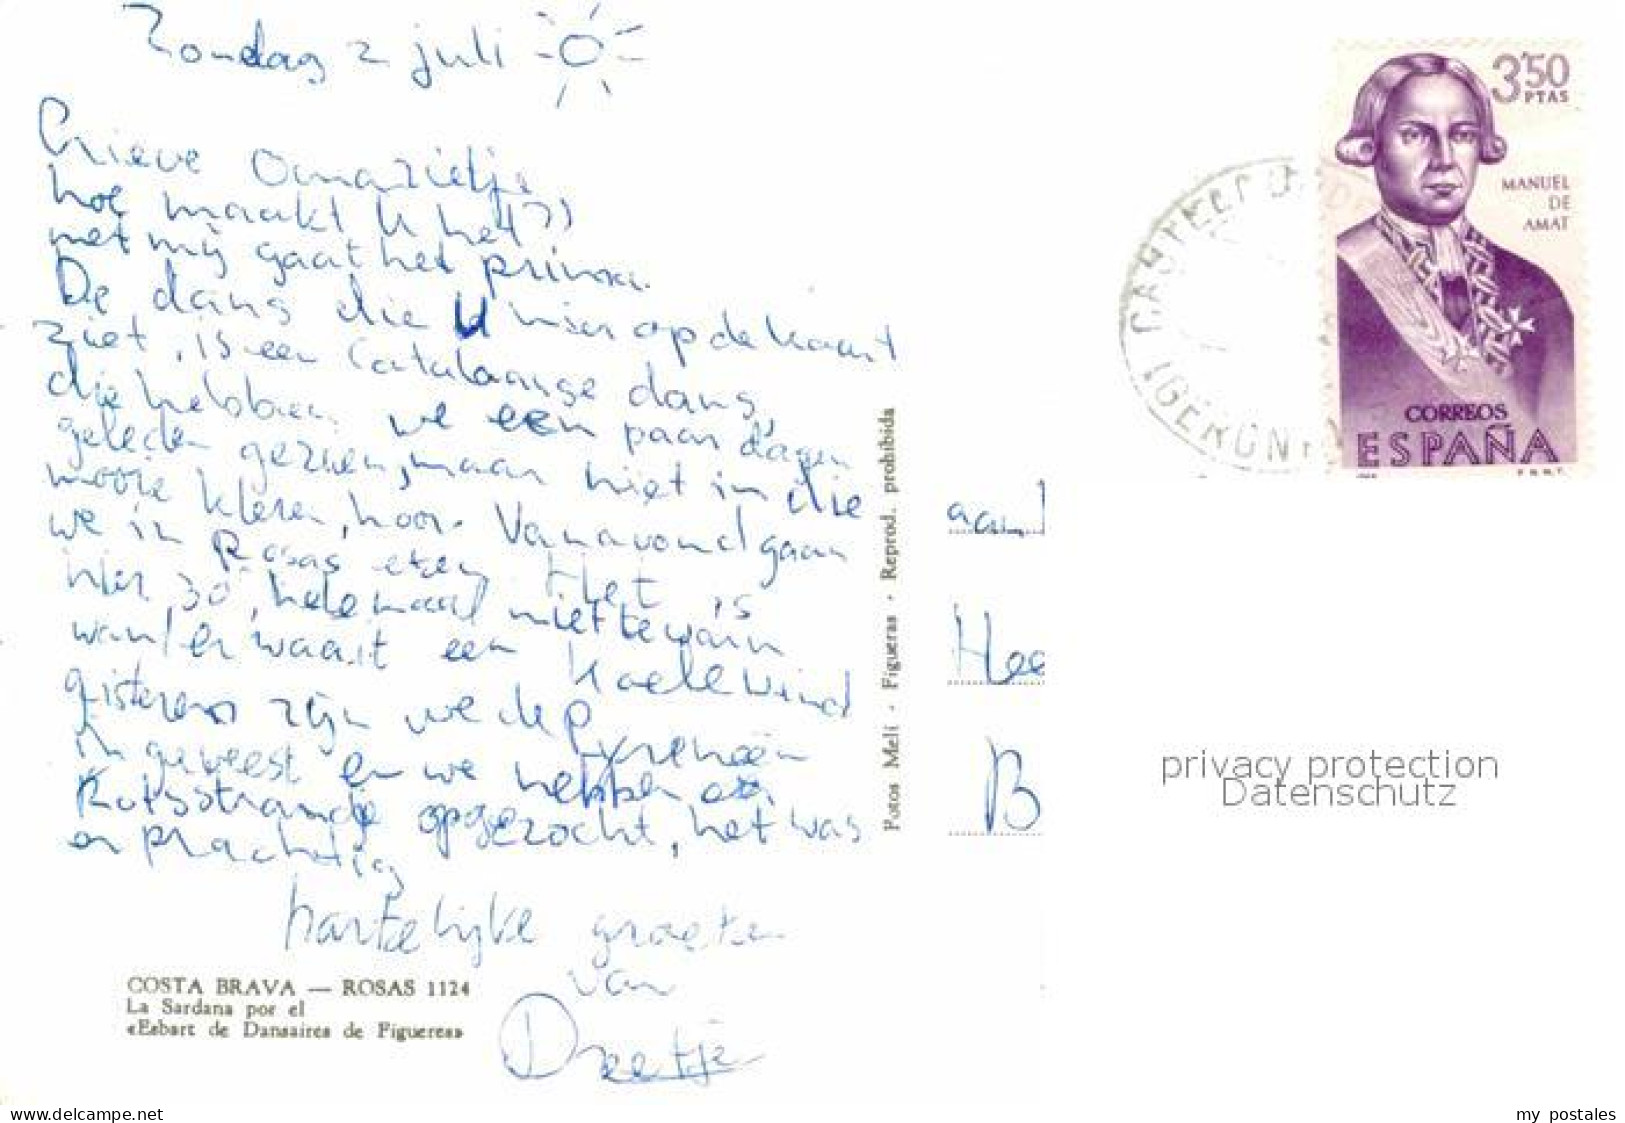 Zondag 2 juli
Lieve Omazietje
hoe maakt U het??
met mij gaat het prima.
De dans die U hier op de kaart
ziet, is een Catalaanse dans,
die hebben we een paar dagen
geleden gezien, maar niet in die
mooie kleren, hoor. Vanavond gaan
we in Rosas eten Het is
hier 30°, helemaal niet te warm
want er waait een koele wind
gisteren zijn we de Pyreneeën
in geweest en we hebben
opgezocht, het was
er prachtig
hartelijke groeten
van
Deetje
COSTA BRAVA — ROSAS 1124
La Sardana por el
«Esbart de Dansaires de Figueres»
Fotos Meli · Figueras · Reprod. prohibida
3'50
PTAS
MANUEL
DE
AMAT
CORREOS
ESPAÑA
F.N.M.T.
aan
Hee
B
privacy protection
Datenschutz
www.delcampe.net
my postales